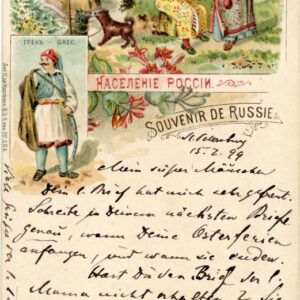 ГРЕКЪ - GREC.
НАСЕЛЕНІЕ РОССІИ.
SOUVENIR DE RUSSIE
St. Petersburg
15.2.99
Mein süßes Mäuschen
Dein l. Brief hat mich sehr gefreut.
Schreibe in Deinem nächsten Briefe
genau, wann Deine Osterferien
anfangen, und wann sie enden.
Hast Du den Brief der l.
Mama nicht erhalten